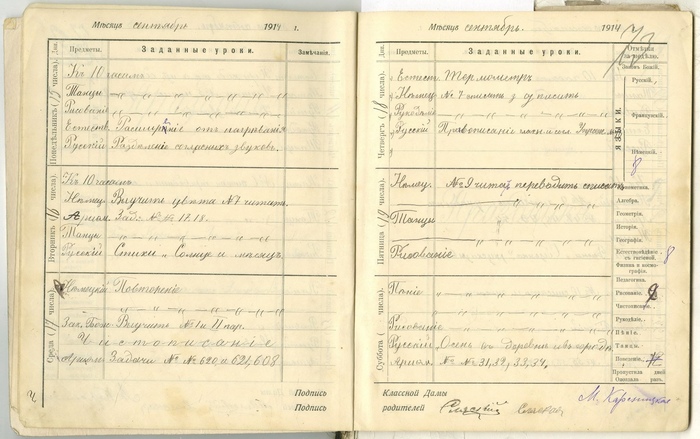 Мѣсяцъ сентябрь 1914 г.
Дни. Предметы. Заданные уроки. Замѣчанія.
Понедѣльникъ (15 числа).
Къ 10 часамъ
Танцы
Рисованіе
Естеств. Расширеніе отъ нагрѣванія
Русскій Раздѣленіе согласныхъ звуковъ.
Вторникъ (16 числа).
Къ 10 часамъ
Нѣмец. Выучить цвѣта №7 читать.
Арием. Зад. № № 17. 18.
Танцы
Русскій Стихи „ Солнце и мѣсяцъ
Среда (17 числа)
Нѣмецкій Повтореніе
Зак. Бож. Выучить №1 и 11 пар.
Чистописаніе
Задачи № № 620, и 621, 608
Подпись
Подпись
Мѣсяцъ сентябрь. 1914
Дни. Предметы. Заданные уроки. Отмѣтки за недѣлю.
Четвергъ (18 числа).
Естеств. Термометръ
Нѣмец. №7 списать
Рукодѣліе
Русскій Правописаніе
Пятница (19 числа).
Нѣмец. №9 читать переводить списать
Танцы
Рисованіе
Суббота ( числа)
Пѣніе
Рисованіе
Русскій „Осень въ деревнѣ и въ городѣ
Арием. № № 31, 32, 33, 34,
Законъ Божій.
ЯЗЫКИ.
Русскій.
Французскій.
Нѣмецкій.
8
Ариѳметика.
Алгебра.
Геометрія.
Исторія.
Географія.
Естествовѣдѣніе съ гигіеной. 8
Физика и космографія.
Педагогика.
Рисованіе. 9
Чистописаніе.
Рукодѣліе.
Пѣніе.
Танцы.
Поведеніе.
Пропустила дней
Опоздала разъ.
Классной Дамы
родителей